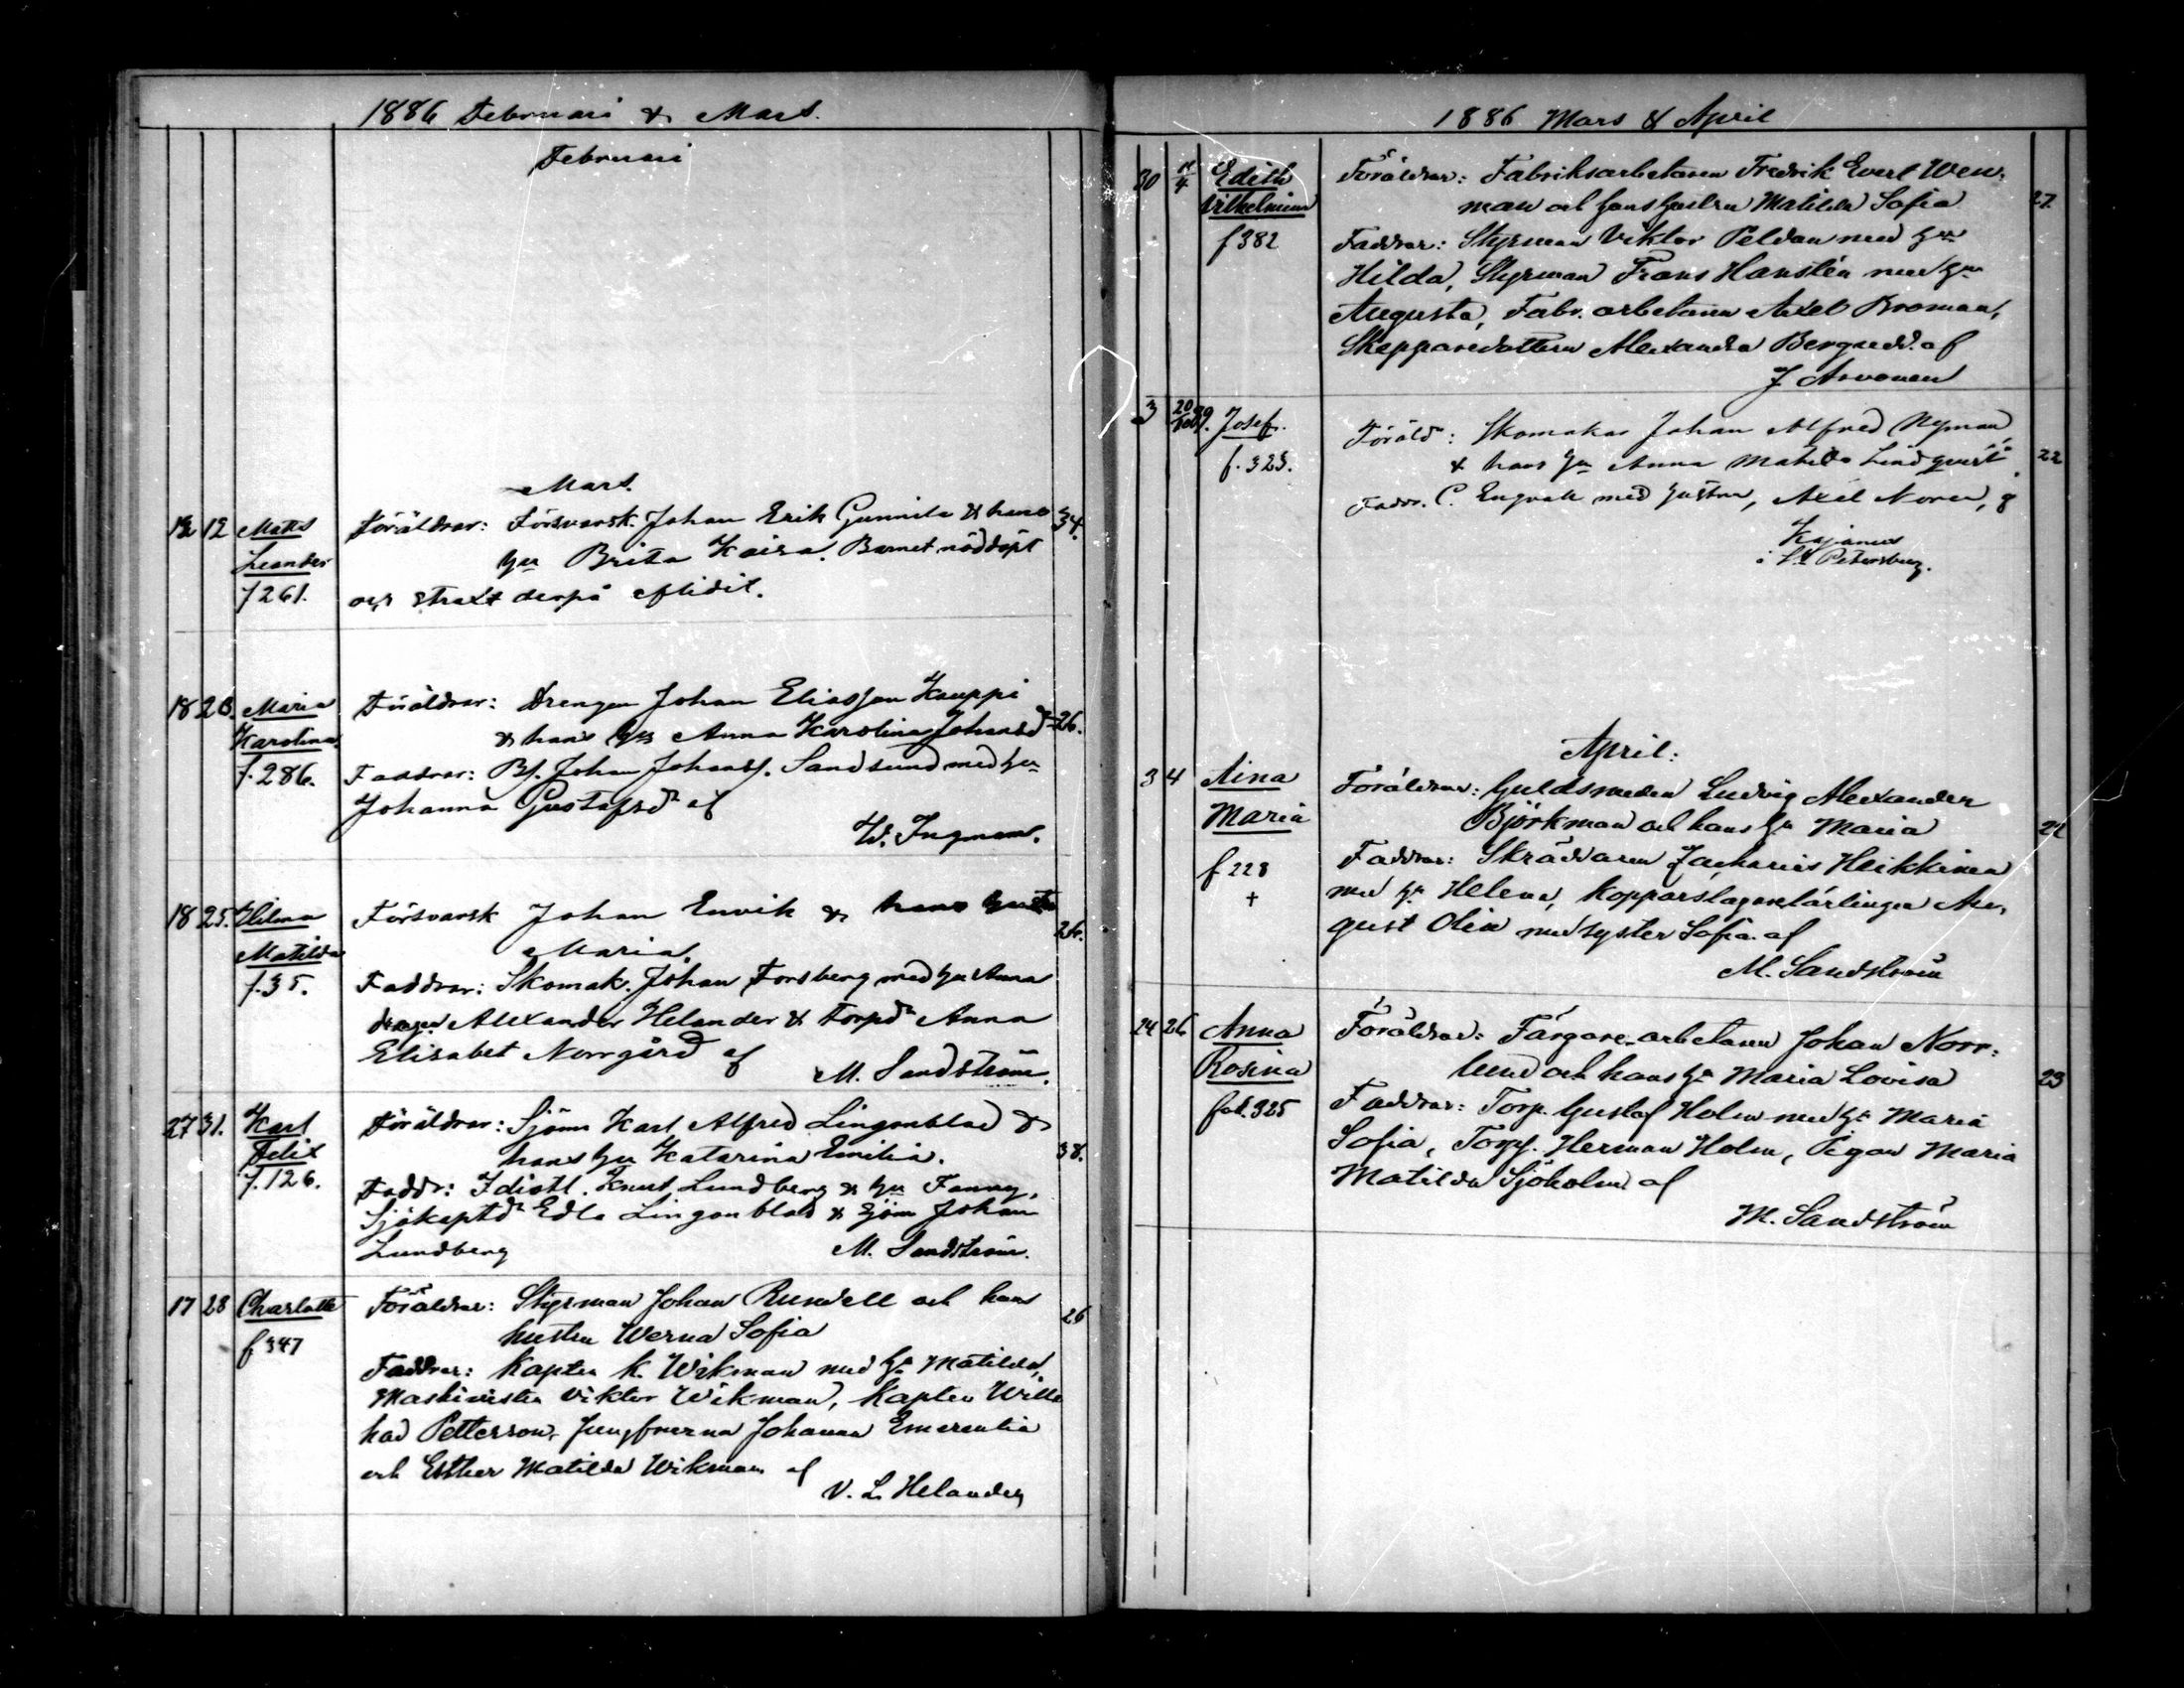 1886 Februari & Mars.
Februari
Mars.
12 12 Matts Föräldrar: Försvarsk. Johan Erik Gunnila & hans 34.
Leander hu Brita Kaisa. Barnet nöddöpt
f 261. och straxt derpå aflidit.
18 20. Maria Föräldrar: Drengen Johan Eliasson Kauppi
Karolina & hans hu Anna Karolina Johansdr 26.
f. 286. Faddrar: Bs. Johan Johanss. Sandsund med hu
Johanna Gustafsdr af
W. Ingman.
18 25. Hilma Försvarsk Johan Envik & hans hustru 26.
Matilda Maria.
f. 35. Faddrar: Skomak. Johan Forsberg med hu Anna
drengen Alexander Helander & Torpdr Anna
Elisabet Norrgård af
M. Sandström.
27 31. Karl Föräldrar: Sjöm Karl Alfred Lingonblad &
Felix hans hu Katarina Emilia. 38.
f. 126. Faddr: Knut Lundberg & hu Fanny,
Sjökaptdr Edla Lingonblad & Sjöm Johan
Lundberg M. Sandström.
17 28 Charlotte Föräldrar: Styrman Johan Rundell och hans 26
f 347 hustru Werna Sofia
Faddrar: Kapten K. Wikman med hu Matilda,
Maskinisten Viktor Wikman, Kapten Wille
had Petterson, Jungfruerna Johanna Emerentia
och Esther Matilda Wikman af
V. L. Helander
1886 Mars & April
30 1/4 Edith Föräldrar: Fabriksarbetaren Fredrik Evert Wen-
Vilhelmina man och hans hustru Matilda Sofia 27.
f 382 Faddrar: Styrman Viktor Peldan med hu
Hilda, Styrman Frans Hanstén med hu
Augusta, Fabr. arbetaren Axel Broman,
Skepparedottern Alexandra Berg
J Arvonen
3 20 Josef. Föräldr: Skomakar Johan Alfred Nyman
f. 323. & hans hu Anna Matilda Lindqvist. 22
Faddr. C. Engvall med hustru, Axel Noren, g
Kajanus
i S:t Petersburg.
April:
3 4 Aina Föräldrar: Guldsmeden Ludvig Alexander
Maria Björkman och hans hu Maria 22
f 228 Faddrar: Skräddaren Zacharias Heikkinen
+ med hu Helena, Kopparslagarelärlingen Au-
gust Olin med syster Sofia af
M. Sandström
24 26 Anna Föräldrar: Färgare-arbetaren Johan Norr-
Rosina lund och hans hu Maria Lovisa 23
fol. 325 Faddrar: Torp. Gustaf Holm med hu Maria
Sofia, Torp. Herman Holm, Pigan Maria
Matilda Sjöholm af
M. Sandström